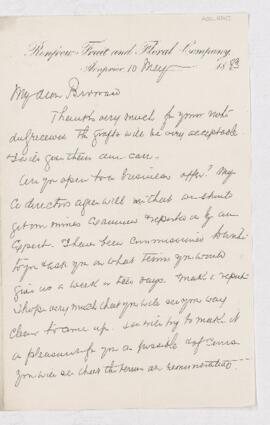 Renfrow Fruit and Floral Company.
Arapoor 10 May 1893
My dear Brorrow
Thanks very much for your note
duly received. The grafts will be very acceptable
I will give them every care.
Are you open to a business offer? My
co directors agree with me that we should
get our vines examined & reported on by an
Expert. I have been commissioned to write
to you & ask you on what terms you would
give us a week or two days. Make a report
I hope very much that you will see your way
clear to come up. I will try to make it
as pleasant for you as possible & of course
you will see that the terms are remunerative.